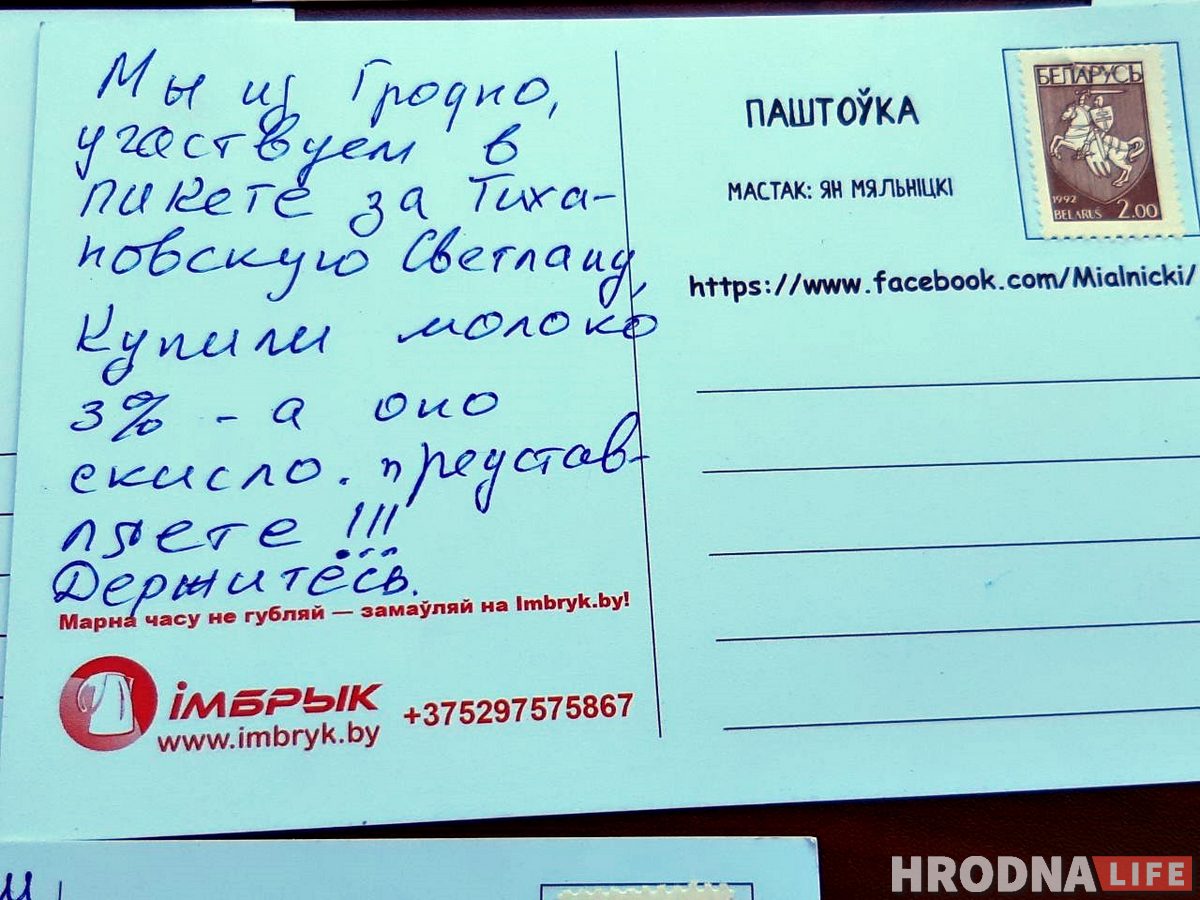 Мы из Гродно,
участвуем в
пикете за Тиха-
новскую Светлану,
Купили молоко
3% - а оно
скисло. Преустав-
ляете !!!
Держитесь.
Марна часу не губляй — замаўляй на Imbryk.by!
імБРЫК
www.imbryk.by
+375297575867
ПАШТОЎКА
МАСТАК: ЯН МЯЛЬНІЦКІ
https://www.facebook.com/Mialnicki/
БЕЛАРУСЬ
1992
BELARUS 2.00
HRODNA LIFE